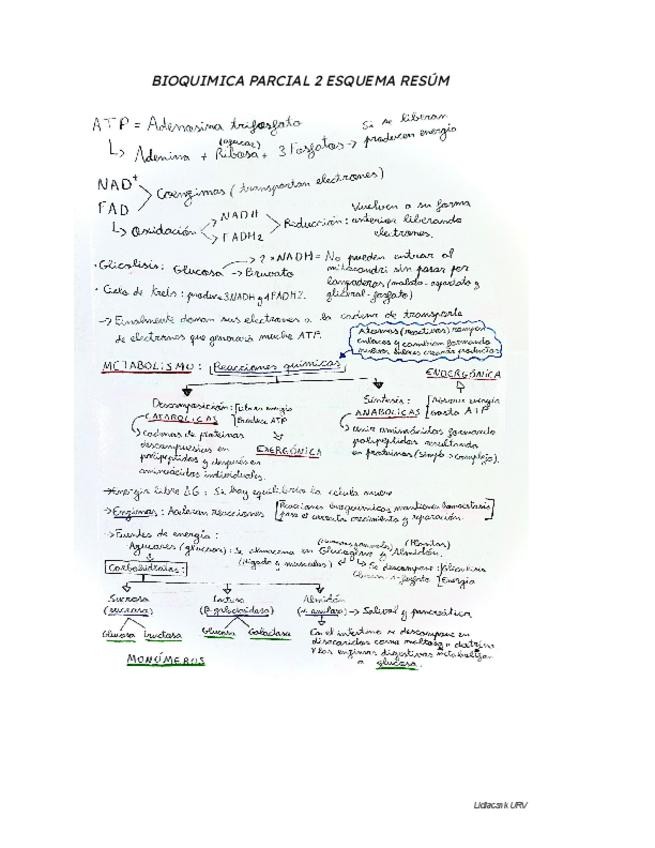 BIOQUIMICA PARCIAL 2 ESQUEMA RESÚM
ATP = Adenosina trifosfato
↳ Adenina + Ribosa (azúcar) + 3 Fosfatos → Si se liberan producen energía
NAD+
FAD
Coenzimas (transportan electrones)
↳ Oxidación
NADH
FADH2
Reducción: Vuelven a su forma
anterior liberando
electrones.
· Glicolisis: Glucosa → 2 x NADH = No pueden entrar al
→ Piruvato
mitocondri sin pasar por
lanzaderas (malato-aspartato y
glicerol-fosfato)
· Ciclo de Krebs: produce 3 NADH y 1 FADH2.
→ Finalmente donan sus electrones a la cadena de transporte
de electrones que generará mucho ATP.
Atomos (reactivos) rompen
enlaces y cambian formando
nuevos
METABOLISMO: Reacciones químicas
ENDERGÓNICA
Descomposición: Liberan energía
CATABOLICAS Produce ATP
↳ cadenas de proteínas
descompuestas en
polipéptidos y después en
aminoácidos individuales.
EXERGÓNICA
Síntesis: Absorve energía
ANABOLICAS gasta ATP
→ unir aminoácidos formando
polipéptidos resultando
en proteínas (simple > complejo).
→ Energía libre ΔG: Si hay equilibrio la célula muere
→ Enzimas: Aceleran reacciones
Reacciones bioquímicas mantienen homeostasis
para el correcto crecimiento y reparación.
→ Fuentes de energía:
Azucares (glucosa): Se almacena en Glucógeno y Almidón.
(Plantas)
(hígado y músculos)
↳ Se descompone: Glucolisis
Energía
Carbohidratos:
Sucrosa
(sucrasa)
Glucosa Fructosa
Lactosa
(β galactosidasa)
Glucosa Galactosa
Almidón
(α amilasa) → Salival y pancreática
En el intestino se descompone en
disacáridos como maltosa o dextrina
y las enzimas digestivas metabolizan
a glucosa.
MONÓMEROS
Lidiacnk URV